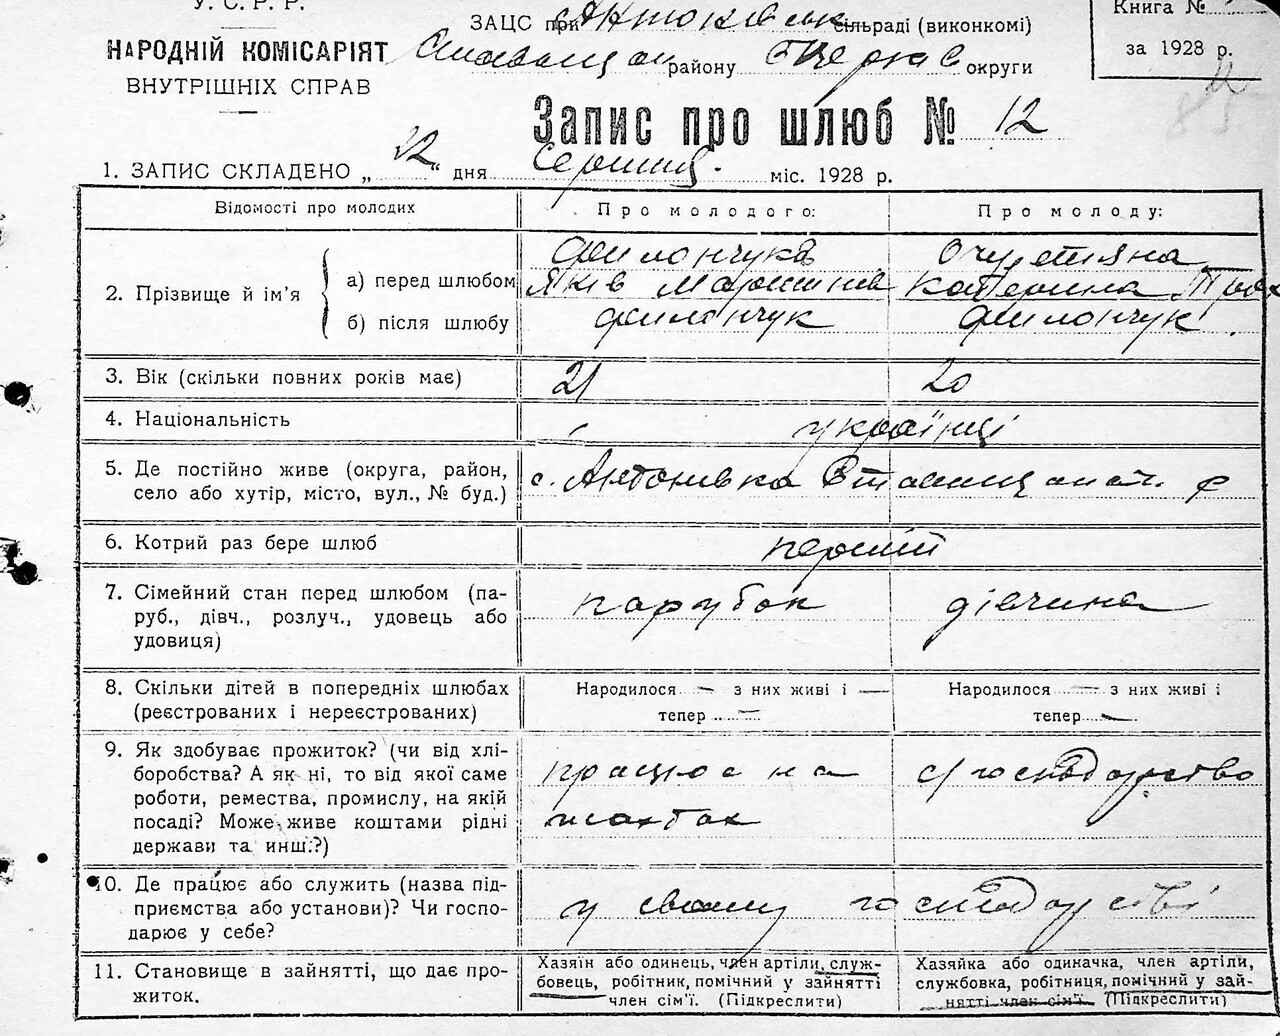 У. С. Р. Р.
НАРОДНІЙ КОМІСАРІЯТ
ВНУТРІШНІХ СПРАВ
ЗАЦС при сільраді (виконкомі)
району Черкас округи
Книга №
за 1928 р.
Запис про шлюб № 12
1. ЗАПИС СКЛАДЕНО „22“ дня Серпня міс. 1928 р.
Відомості про молодих Про молодого: Про молоду:
2. Прізвище й ім’я
а) перед шлюбом
Филончук
Яків
Катерина
б) після шлюбу Филончук Филончук
3. Вік (скільки повних років має) 21 20
4. Національність українці
5. Де постійно живе (округа, район,
село або хутір, місто, вул., № буд.) с. Антонівка
6. Котрий раз бере шлюб перший
7. Сімейний стан перед шлюбом (па-
руб., дівч., розлуч., удовець або
удовиця) парубок дівчина
8. Скільки дітей в попередніх шлюбах
(реєстрованих і нереєстрованих)
Народилося — з них живі і —
тепер —
Народилося — з них живі і
тепер —
9. Як здобуває прожиток? (чи від хлі-
боробства? А як ні, то від якої саме
роботи, ремества, промислу, на якій
посаді? Може живе коштами рідні
держави та инш.?)
працює на
шахтах
с/господарство
10. Де працює або служить (назва під-
приємства або установи)? Чи госпо-
дарює у себе?
у своему господарстві
11. Становище в зайнятті, що дає про-
житок.
Хазяїн або одинець, член артіли, служ-
бовець, робітник, помічний у зайнятті
член сім’ї. (Підкреслити)
Хазяйка або одиначка, член артіли,
службовка, робітниця, помічний у зай-
нятті член сім’ї. (Підкреслити)